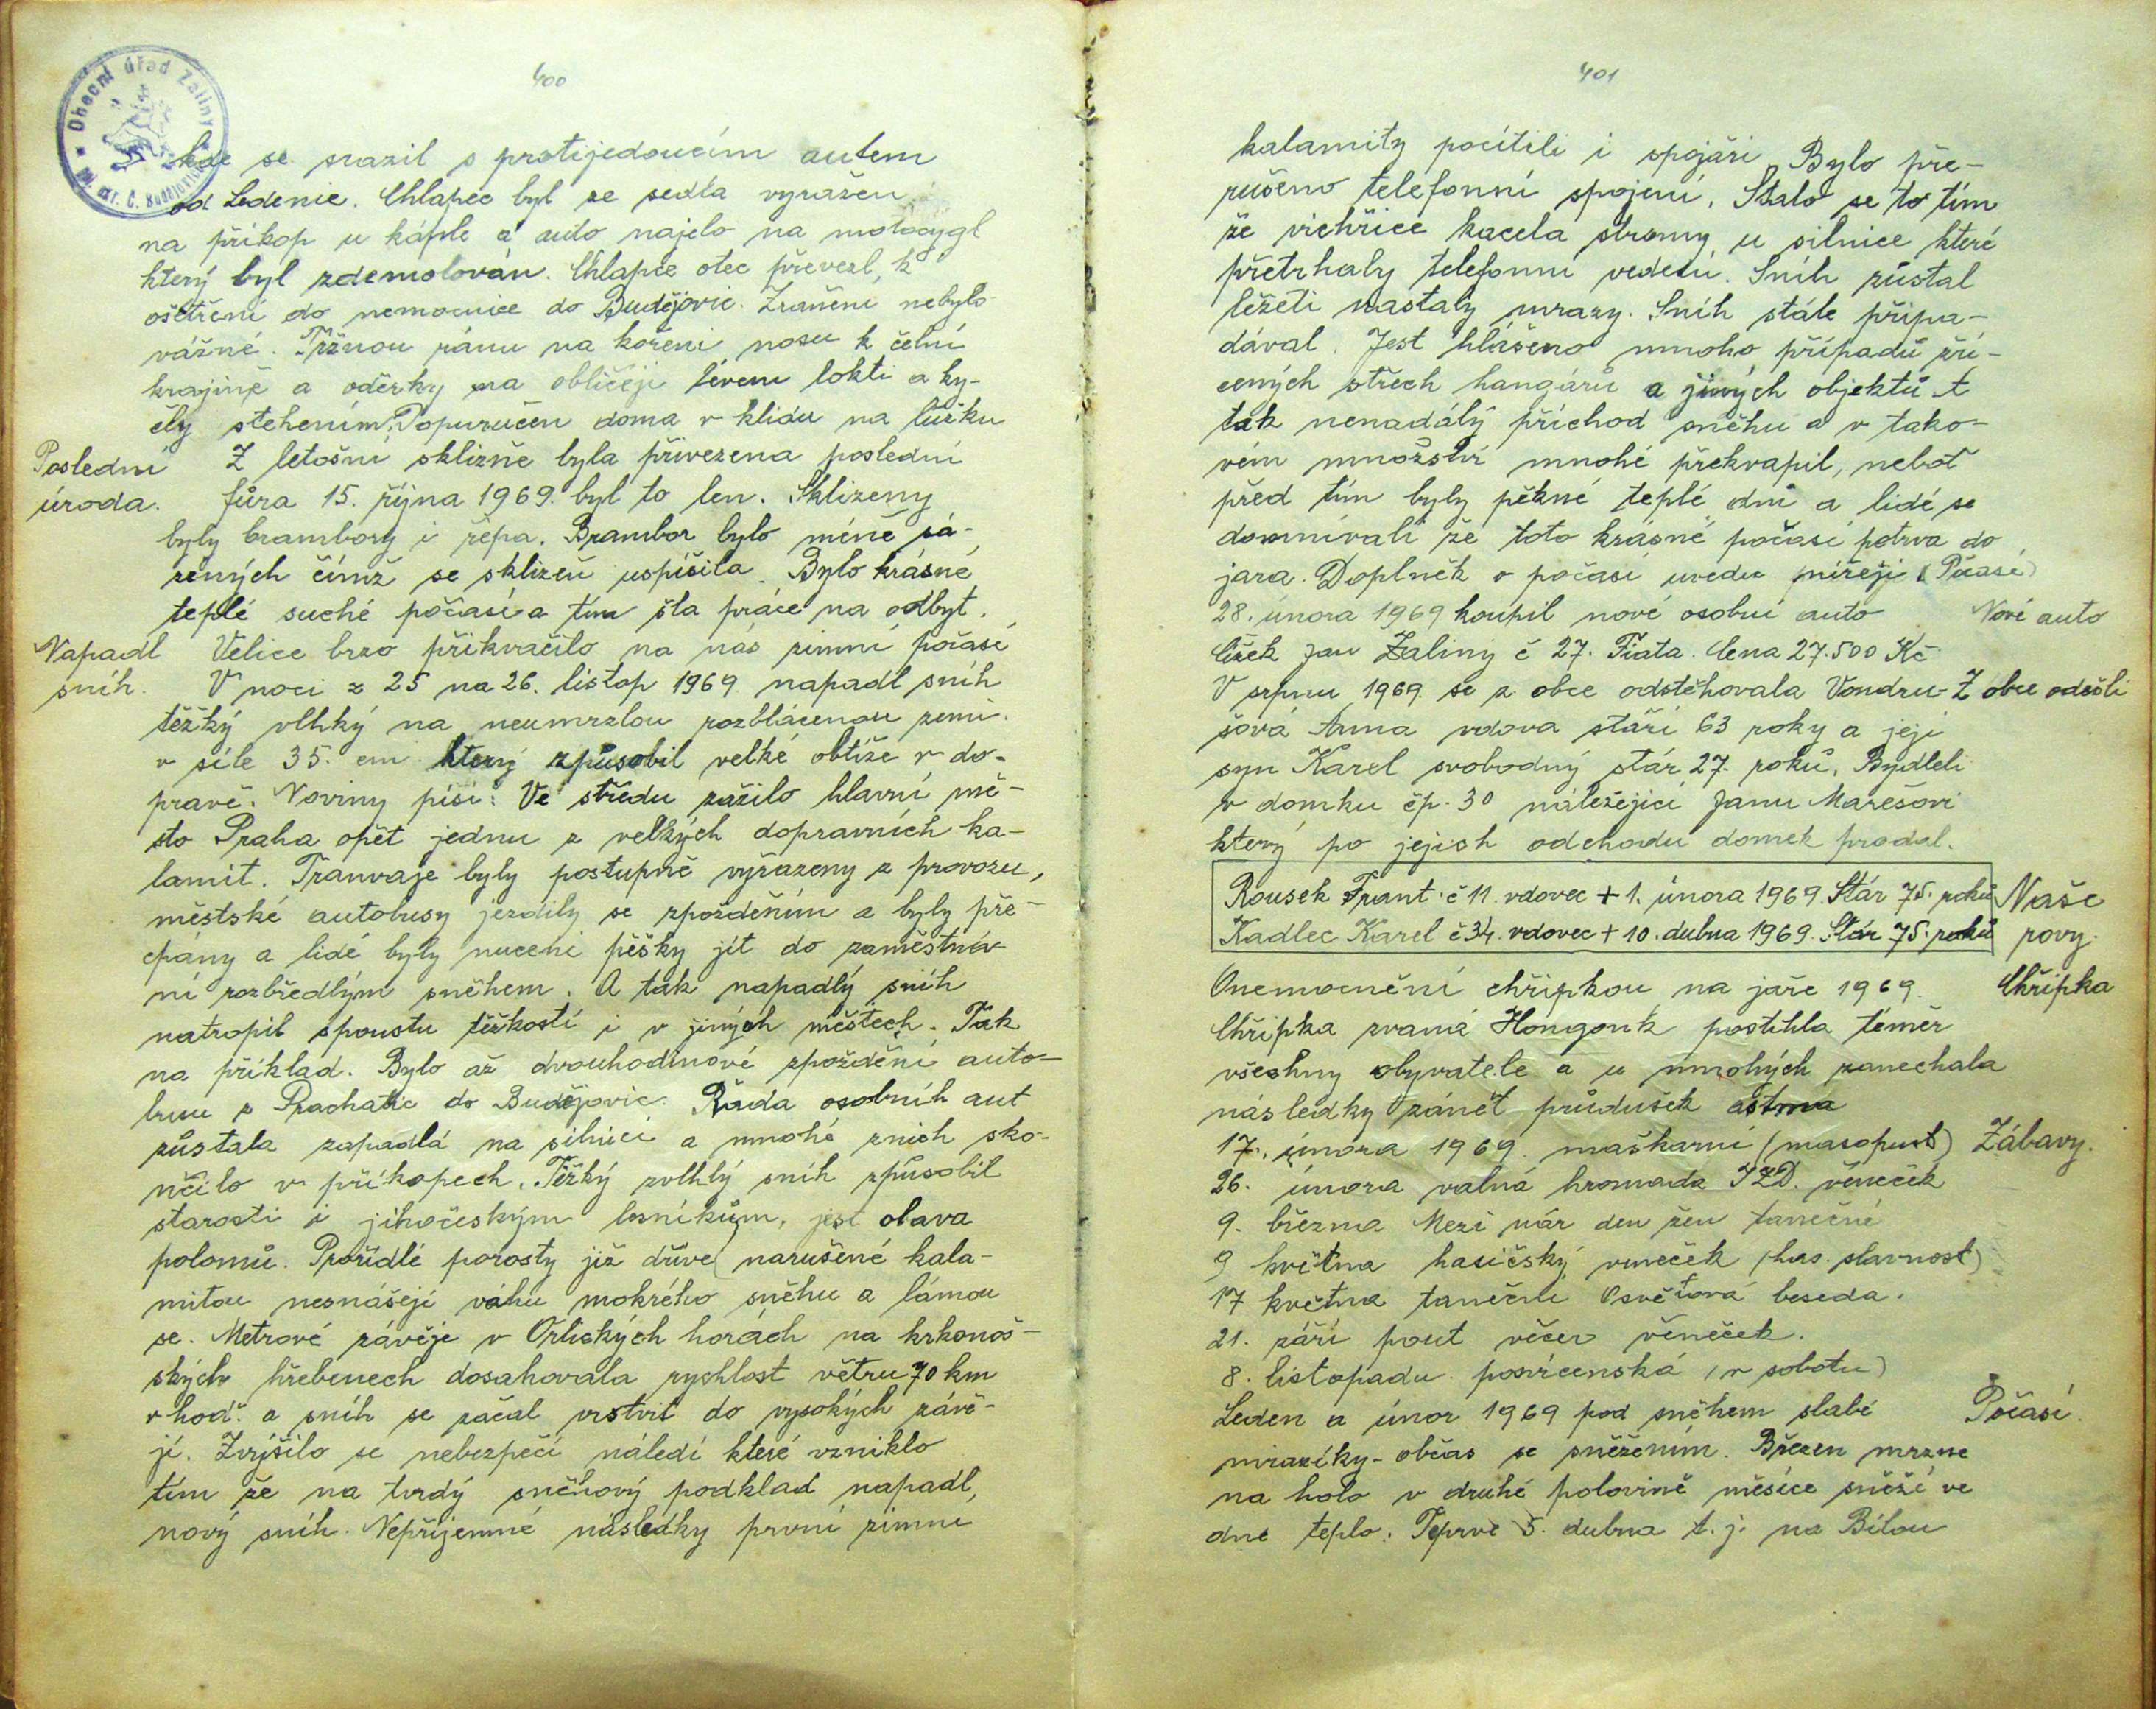 400
Obecní úřad Zaliny
kde se srazil s protijedoucím autem
od Ledenic. Chlapec byl se sedla vyražen
na příkop u káple a auto najelo na motocygl
který byl zdemolován. Chlapce otec převezl, k
ošetření do nemocnice do Budějovic. Zranění nebylo
vážné. Tržnou ránu na kořeni nosu k čelní
krajině a oděrky na obličeji lévem lokti a ky-
čly stehením. Dopuručen doma v klidu na lůžku
Poslední Z letošní sklizně byla přivezena poslední
úroda. fůra 15. října 1969. byl to len. Sklizeny
byly brambory i řepa. Brambor bylo méně sá-
zených čímž se sklizeň uspíšila. Bylo krásné
teplé suché počasí a tím šla práce na odbyt.
Napadl Velice brzo přikvačilo na nás zimní počasí
sníh. V noci z 25 na 26. listop 1969 napadl sníh
těžký vlhký na neumrzlou rozblácenou zemi.
v síle 35. cm který způsobil velké obtíže v do-
pravě. Noviny píší: Ve středu zažilo hlavní mě-
sto Praha opět jednu z velkých dopravních ka-
lamit. Tranvaje byly postupně vyřazeny z provozu,
městské autobusy jezdily se zpožděním a byly pře-
cpány a lidé byly nuceni pěšky jít do zaměstná-
ní rozbředlým sněhem. A tak napadlý sníh
natropil spoustu těžkostí i v jiných městech. Tak
na příklad. Bylo až dvouhodinové zpoždění auto-
busu z Prachatic do Budějovic. Řada osobních aut
zůstala zapadlá na silnici a mnohé znich sko-
nčilo v příkopech. Těžký zvlhlý sníh způsobil
starosti i jihočeským lesníkům, jest obava
polomů. Pořídlé porosty již dříve narušené kala-
mitou nesnášejí váhu mokrého sněhu a lámou
se. Metrové závěje v Orlických horách na krkonoš-
ských hřebenech dosahovala rychlost větru 70 km
v hod. a sníh se začal vrstvit do vysokých závě-
jí. Zvýšilo se nebezpečí náledí které vzniklo
tím že na tvrdý sněhový podklad napadl,
nový sníh. Nepříjemné následky první zimní
401
kalamity pocítili i spojaři. Bylo pře-
rušeno telefonní spojení. Stalo se to tím
že vichřice kacela stromy u silnice které
přetrhaly telefonní vedení. Sníh zůstal
ležeti nastaly mrazy. Sníh stále připa-
dával. Jest hlášeno mnoho případů zří-
cených střech hangárů a jiných objektů A
tak nenadálý příchod sněhu a v tako-
vém množství mnohé překvapil, neboť
před tím byly pěkné teplé dni a lidé se
domnívali že toto krásné počasí potrva do
jara. Doplněk o počasí uvedu nížeji (Počasí)
28. února 1969 koupil nové osobní auto Nové auto
Cížek Jan Zaliny č 27. Fiata. Cena 27.500 Kč
V srpnu 1969. se z obce odstěhovala Vondru- Z obce odešli
šová Anna vdova stáří 63 roky a její
syn Karel svobodný stár 27. roků. Bydleli
v domku čp. 30 náležející Janu Marešovi
který po jejich odchodu domek prodal.
Rousek Frant. č 11. vdovec + 1. února 1969. Stár 75. roků Naše
Kadlec Karel č 34. vdovec + 10. dubna 1969. Stár 75. roků rovy.
Onemocnění chřipkou na jaře 1969. Chřipka
Chřipka zvaná Hongonk postihla téměr
všechny obyvatele a u mnohých zanechala
následky zánět průdušek astma
17. února 1969. maškarní (masopust) Zábavy.
26. února valná hromada JZD. věneček
9. března Mezi nár den žen taneční
9 května hasičský veneček (has. slavnost)
17 května taneční Osvětová beseda.
21. září pout večer věneček.
8. listopadu. posvícenská (v sobotu)
Leden a únor 1969 pod sněhem slabé Počasí.
mrazíky - občas se sněžením. Březen mrzne
na holo v druhé polovině měsíce sněží ve
dne teplo. Teprve 5. dubna t.j. na Bílou